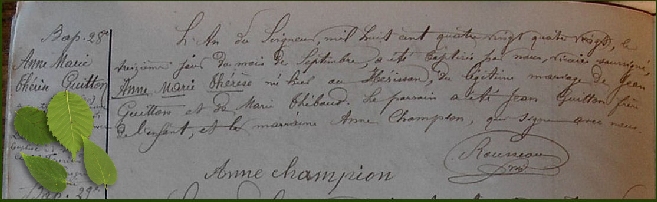 Bap. 28e
Anne Marie
Thérèse Guitton
L'An du Seigneur, mil huit cent quatre vingt quatre vingt, le
treizième jour du mois de Septembre a été baptisée par nous, vicaire soussigné,
Anne Marie Thérèse née hier au Hérisson, du légitime mariage de Jean
Guitton et de Marie Thébaud. Le parrain a été Jean Guitton frère
de l'enfant, et la marraine Anne Champion, qui signe avec nous.
Rousseau
Anne Champion
Bap. 29e